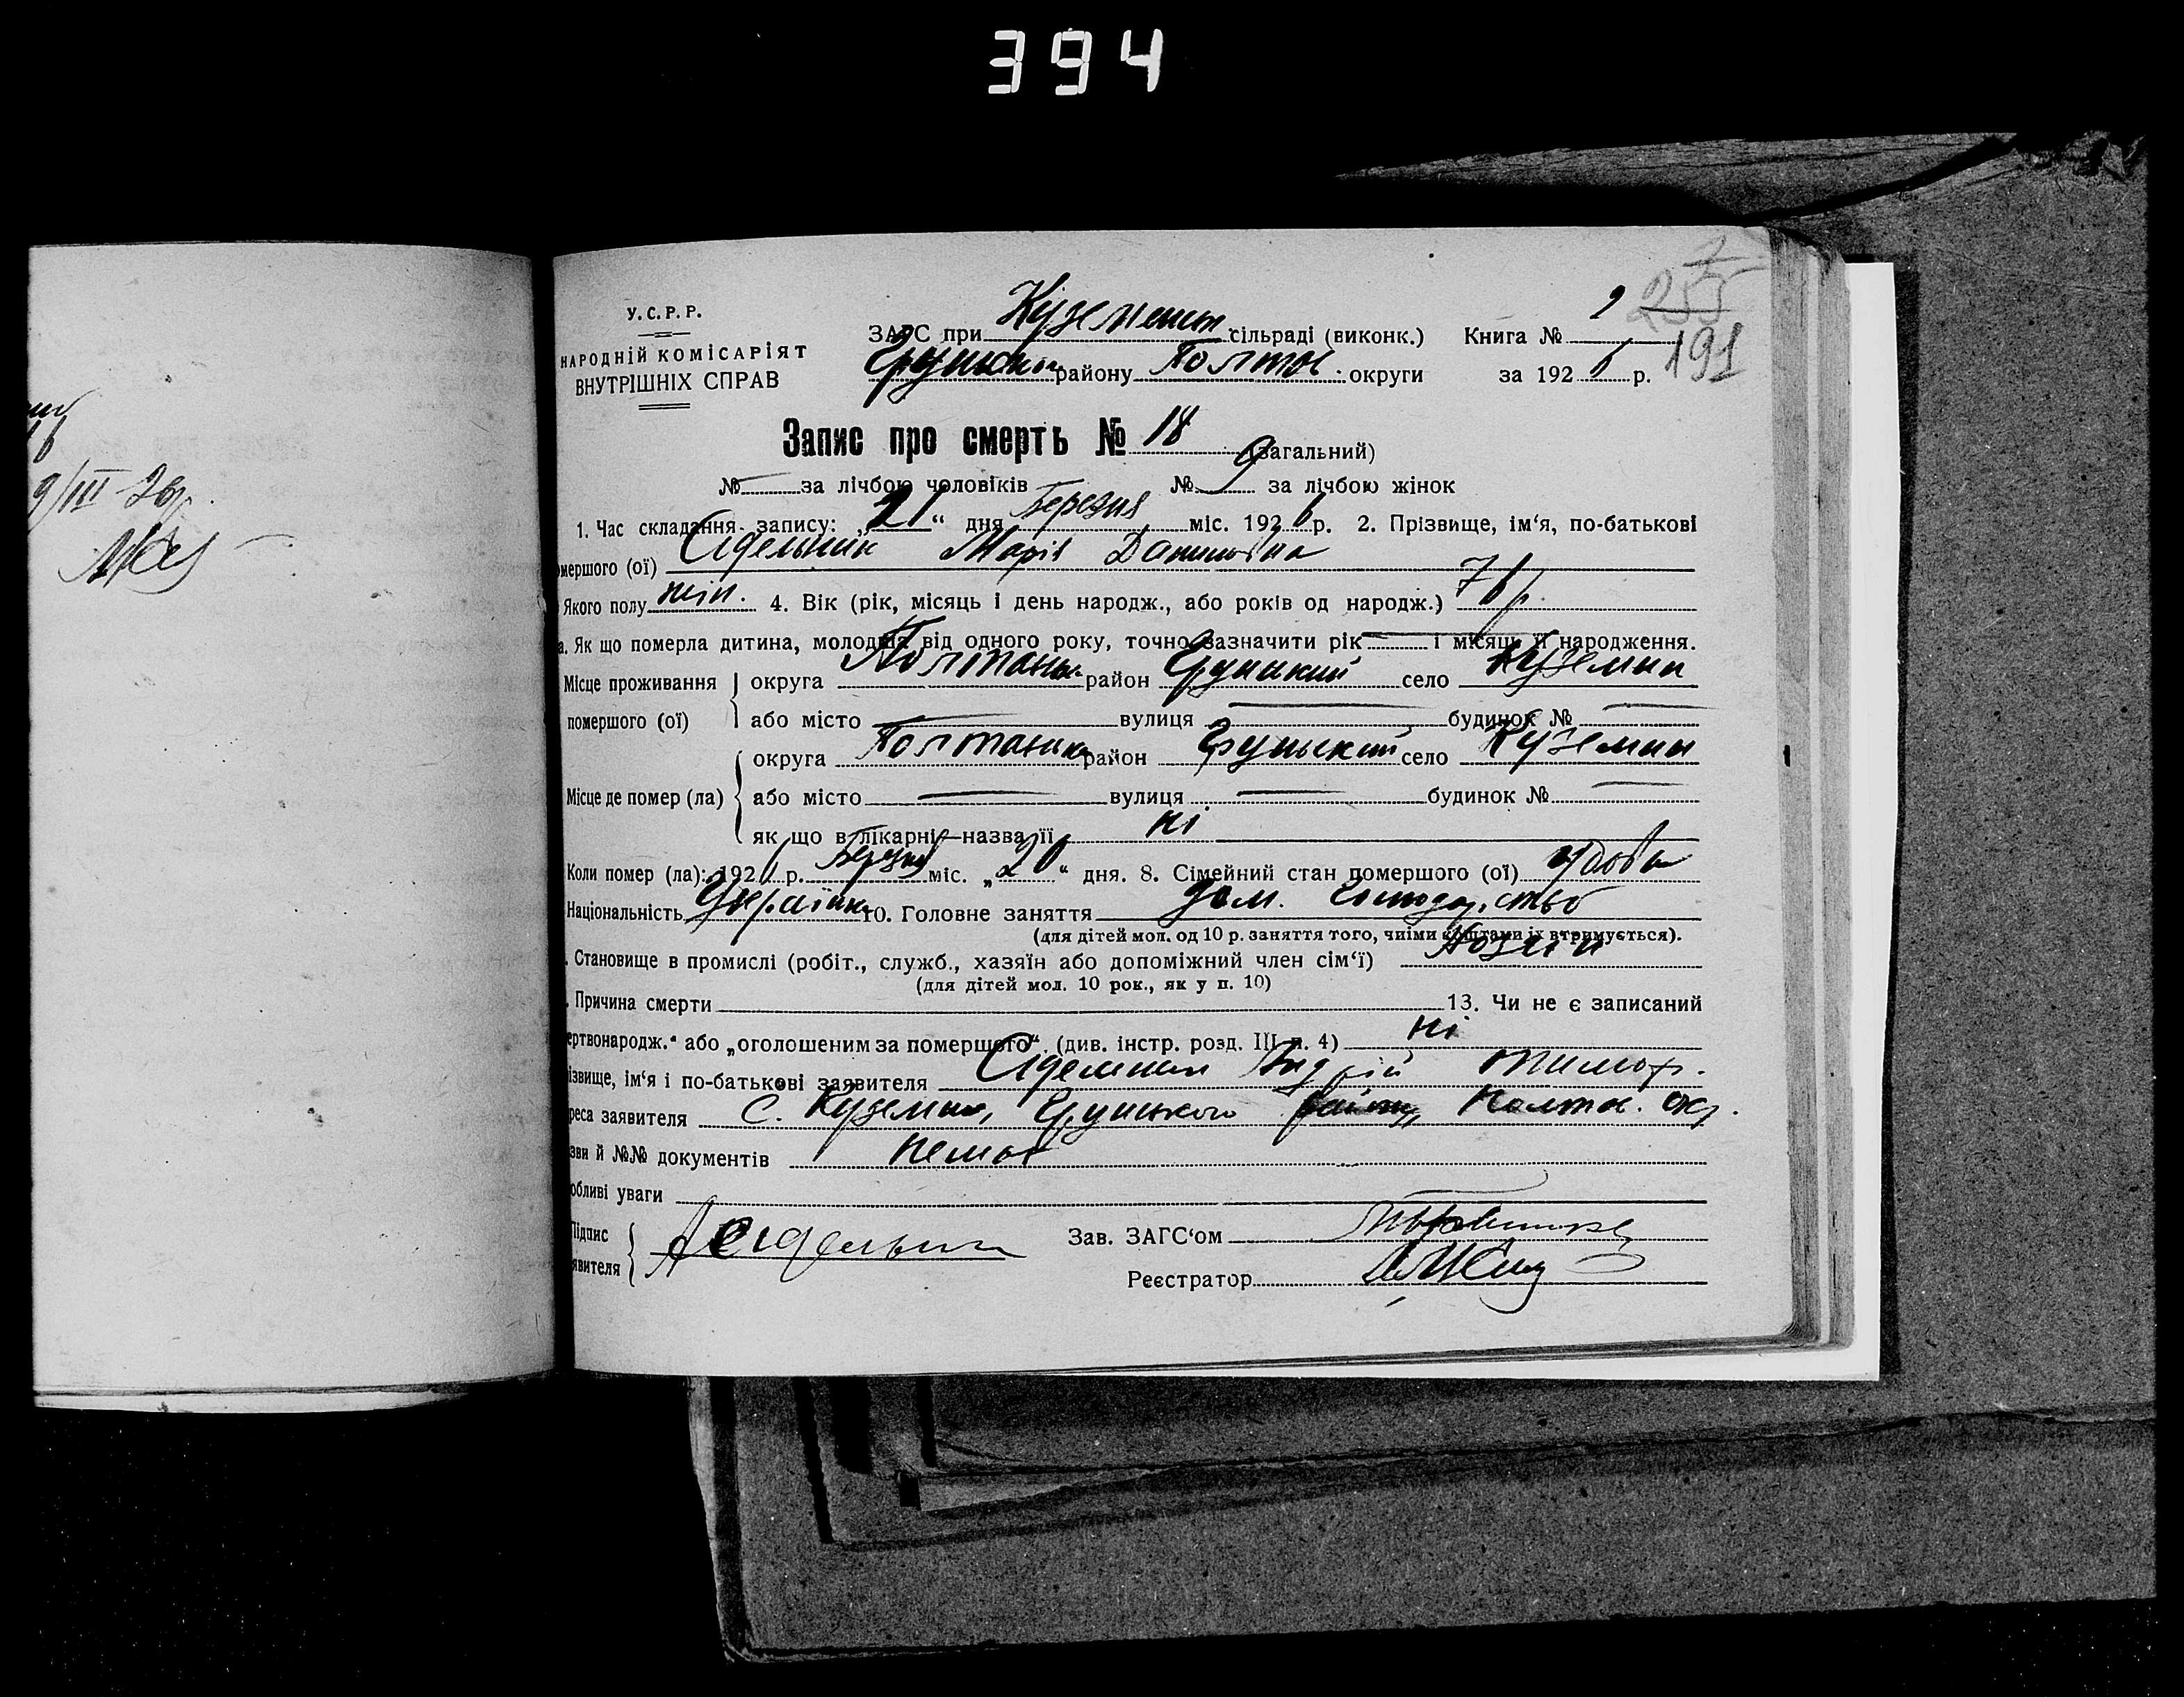 394
У.С.Р.Р.
НАРОДНІЙ КОМІСАРІЯТ
ВНУТРІШНІХ СПРАВ
ЗАГС при Куземенськ. сільраді (виконк.) Книга №
району Полтав. округи за 192 6 р.
255
191
Запис про смерть № 18 (загальний)
№ за лічбою чоловіків № 9 за лічбою жінок
1. Час складання запису: „21“ дня Березня міс. 192 6 р. 2. Прізвище, ім‘я, по-батькові
мершого (ої) Сідельник Марія Данилівна
Якого полу жін. 4. Вік (рік, місяць і день народж., або років од народж.) 76 р.
а. Як що померла дитина, молодша від одного року, точно зазначити рік і місяць її народження.
Місце проживання округа Полтавськ. район Грунський село Куземин
помершого (ої) або місто вулиця будинок №
округа Полтавська район Грунський село Куземин
Місце де помер (ла) або місто вулиця будинок №
як що в лікарні—назва її ні
Коли помер (ла): 192 6 р. Березня міс. „20“ дня. 8. Сімейний стан помершого (ої) удова
Національність Українка 10. Головне заняття дом. господарство
(для дітей мол. од 10 р. заняття того, чиїми коштами їх втримується).
. Становище в промислі (робіт., служб., хазяїн або допоміжний член сім‘ї) Хозяін
(для дітей мол. 10 рок., як у п. 10)
. Причина смерти 13. Чи не є записаний
ертвонародж.“ або „оголошеним за помершого“ (див. інстр. розд. III п. 4) ні
ізвище, ім‘я і по-батькові заявителя Сідельник Андрій Тимоф.
реса заявителя с. Куземин, Грунського району, Полтав. окр.
зви й №№ документів немає
обливі уваги
Підпис
явителя А Сидельник
Зав. ЗАГС‘ом
Реєстратор
9/III 26р.